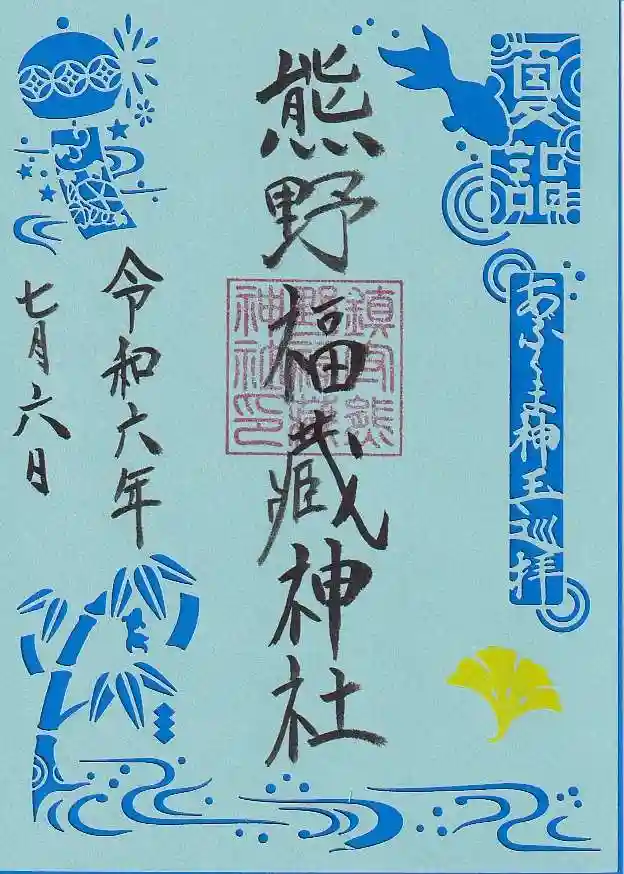 夏詣
あぶくま神玉巡拝
熊野福藏神社
鎮守熊
野福藏
神社印
令和六年
七月六日